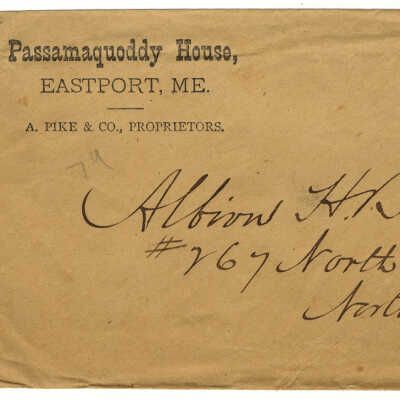 Passamaquoddy House,
EASTPORT, ME.
A. PIKE & CO., PROPRIETORS.
74
Albion H.
#267 North